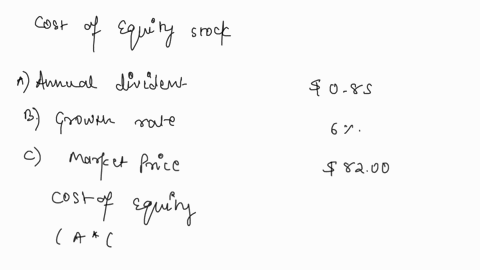 Cost of Equity stock
A) Annual divident $ 0.85
B) Growth rate 6%.
C) Market Price $ 82.00
Cost of Equity
( A * (